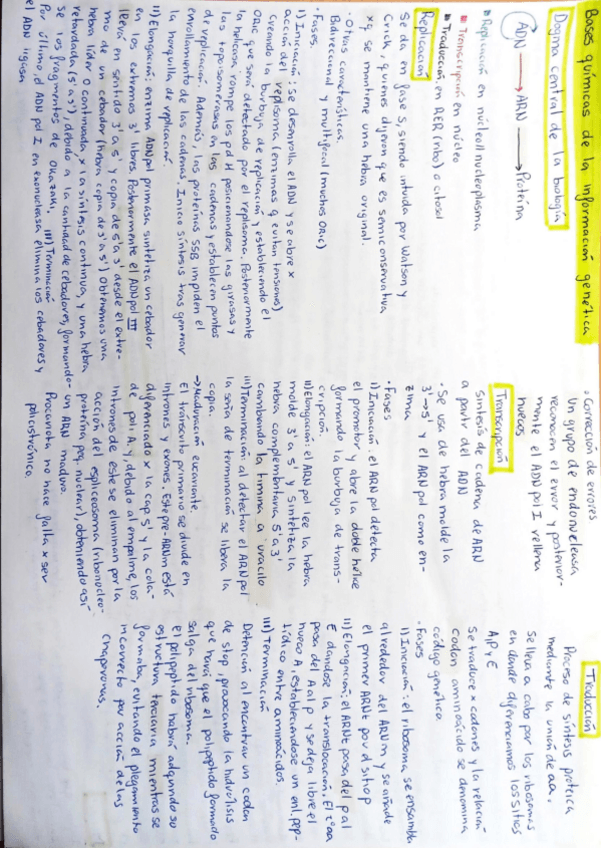 Bases químicas de la información genética
Dogma central de la biología
ADN → ARN → Proteína
Replicación en núcleo/nucleoplasma
Transcripción en núcleo
Traducción en RER (ribo) o citosol
Replicación
Se da en fase S, siendo intuida por Watson y
Crick, quienes dijeron que es semiconservativa
xq se mantiene una hebra original.
· Otras características.
Bidireccional y multifocal (muchos ORIC)
· Fases.
I) Iniciación: se desenrolla el ADN y se abre x
acción del replisoma (enzimas q evitan tensiones)
creando la burbuja de replicación y estableciendo el
ORIC que será detectado por el replisoma. Posteriormente
la helicasa rompe los pdH posicionandose las girasas y
las topoisomerasas en las cadenas y establecen puntos
de replicación. Además, las proteínas SSB impiden el
enrollamiento de las cadenas. Inicio síntesis tras generar
la horquilla de replicación.
II) Elongación: enzima ADNpol primasa sintetiza un cebador
en los extremos 3' libres. Posteriormente el ADNpol III
lleva en sentido 3' a 5' y copia de 5' a 3' desde el extre-
mo de un cebador (hebra copia de 3' a 5') Obtenemos una
hebra líder o continuada, x la síntesis continua, y una hebra
retardada (5' a 3'), debido a la cantidad de cebadores, formando-
se los fragmentos de Okazaki. III) Terminación
Por último, el ADN pol I en exonucleasa elimina los cebadores y
el ADN ligasa
· Corrección de errores
Un grupo de endonucleasa
reconocen el error y posterior-
mente el ADN pol I rellena
huecos
Transcripción
Síntesis de cadena de ARN
a partir del ADN
· Se usa de hebra molde la
3'→5' y el ARN pol como en-
zima
· Fases
I) Iniciación: el ARN pol detecta
el promotor y abre la doble hélice
formando la burbuja de trans-
cripción.
II) Elongación: el ARN pol lee la hebra
molde 3' a 5' y sintetiza la
hebra complementaria 5' a 3'
cambiando la timina a uracilo
III) Terminación: al detectar el ARN pol
la seña de terminación se libera la
copia.
→ Maduración eucarionte.
El tránscrito primario se divide en
intrones y exones. Este pre-ARNm está
diferenciado x la cap 5' y la cola
de poli A, y debido al empalme, los
intrones de este se eliminan por la
acción del espliceosoma (ribonucleo-
proteína peq. nuclear), obteniendo así
un ARN maduro.
Procariota no hace falta x ser
policistrónico.
Traducción
Proceso de síntesis proteica
mediante la unión de aa.
Se lleva a cabo por los ribosomas
en donde diferenciamos los sitios
A, P y E
Se traduce x codones y la relación
codon aminoácido se denomina
código genético
· Fases
I) Iniciación: el ribosoma se ensambla
alrededor del ARNm y se añade
el primer ARNt por el sitio p
II) Elongación: el ARNt pasa del p al
E dandose la translocación. El 2º aa
pasa del A al p y se deja libre el
nuevo A, estableciendose un enl. pép-
tídico entre aminoácidos.
III) Terminación
Detención al encontrar un codon
de stop, provocando la hidrólisis
que hará que el polipéptido formado
salga del ribosoma.
el polipéptido habrá adquirido su
estructura terciaria mientras se
formaba, evitando el plegamiento
incorrecto por acción de las
chaperonas.